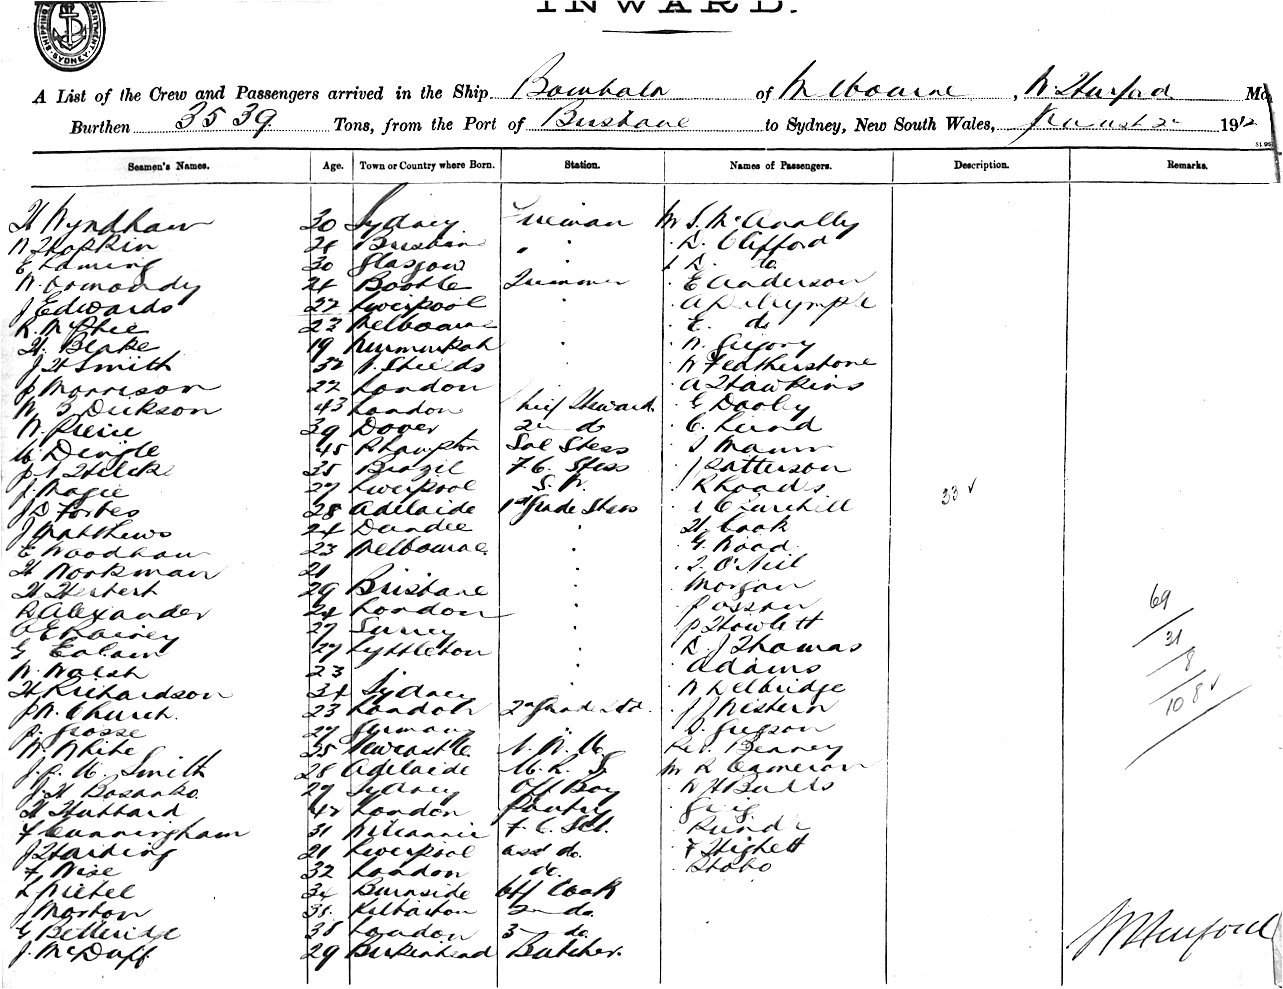 INWARD.
SHIPPING DEPARTMENT SYDNEY
A List of the Crew and Passengers arrived in the Ship Bombala of Melbourne, W Hurford
Burthen 3539 Tons, from the Port of Brisbane to Sydney, New South Wales, 1912
Seamen's Names. Age. Town or Country where Born. Station. Names of Passengers. Description. Remarks.
H Wyndham 30 Sydney Fireman Mr S. McAnally
W Hopkin Brisbane " D. Clifford
E Laming 30 Glasgow D. do
W Ormandy 24 Bootle Trimmer E Anderson
J Edwards 22 Liverpool A Dalrymple
R McPhee 22 Melbourne E. do
H. Blake 19 W. Gregory
J H Smith 32 N. Shields W Featherstone
P Morrison 22 London A Hawkins
W. S Dickson 43 London Chief Steward G Dooley
W. Pierce 39 Dover 2nd do C.
Dingle 45 Rhampton Sal Stess Mann
35 Brazil F. C. Stess J Patterson
J Magee 27 Liverpool S. W. Rhoades
J D Forbes 28 Adelaide 1st Grade Stess Churchill 33 ✓
J Matthews 24 Dundee H. Cook
E Woodham 23 Melbourne G. Wood
H Workman 21 J. O'Neil
H Herbert 29 Brisbane Morgan
R Alexander 24 London
A E Rainey 27 Surrey P Howlett
G Ealam 27 Lyttleton D. J Thomas
W. Walsh 23 Adams
H Richardson 34 Sydney W Delbridge
P W. Church. 23 London 2nd Grade Std. J J Western
P. Grosse 27 Germany S. Gregson
W. White 25 Newcastle Rev. Benney
J. C. W. Smith 28 Adelaide Mr R Cameron
J H Bosanko. 27 Sydney Off Boy W H Butts
H Hubbard 42 London Pantry Greig
F Cunningham 31 F. C. Std.
J Harding 21 Liverpool asst do. F Highett
F, Wise 32 London do.
L 34 Burnside Off Cook
J Morton 35 2nd do.
G Betteridge 38 London 3 do.
J. McDuff 29 Birkenhead Butcher.
69
31
8
108 ✓
W Hurford